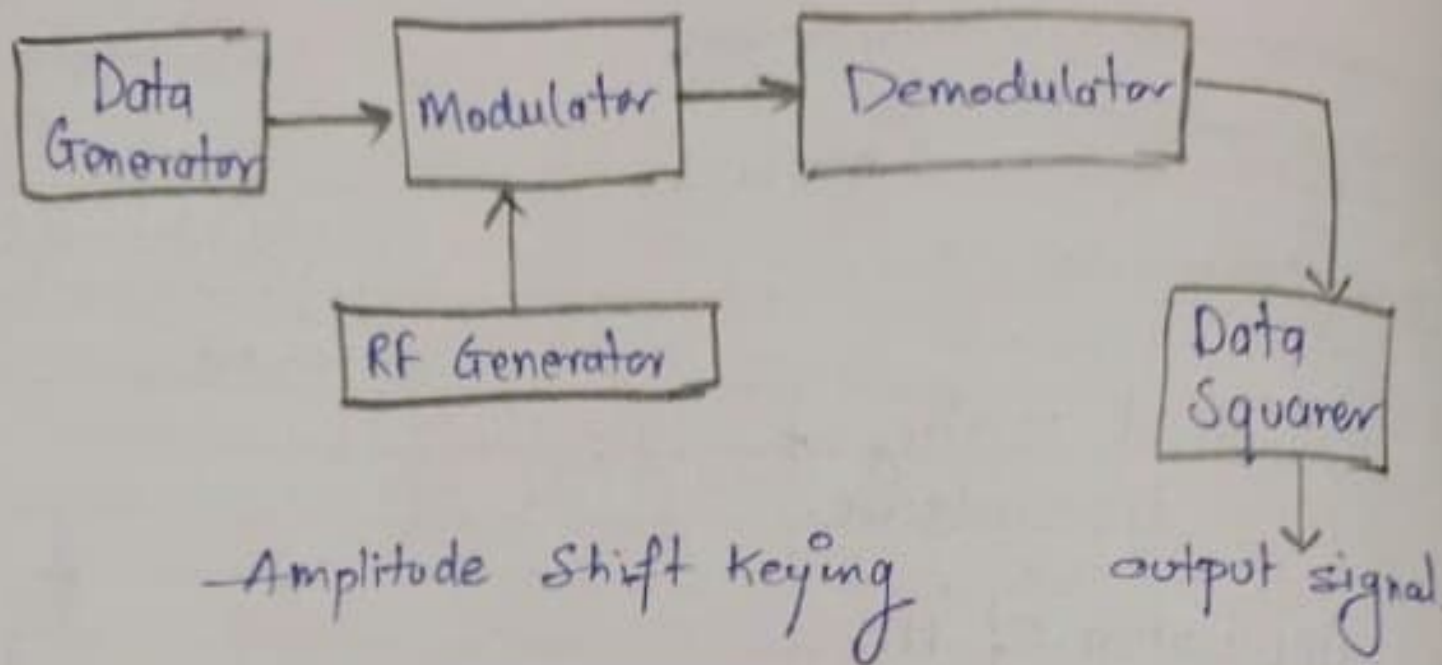 Data
Generator
Modulator
Demodulator
RF Generator
Data
Squarer
Amplitude Shift Keying
output signal